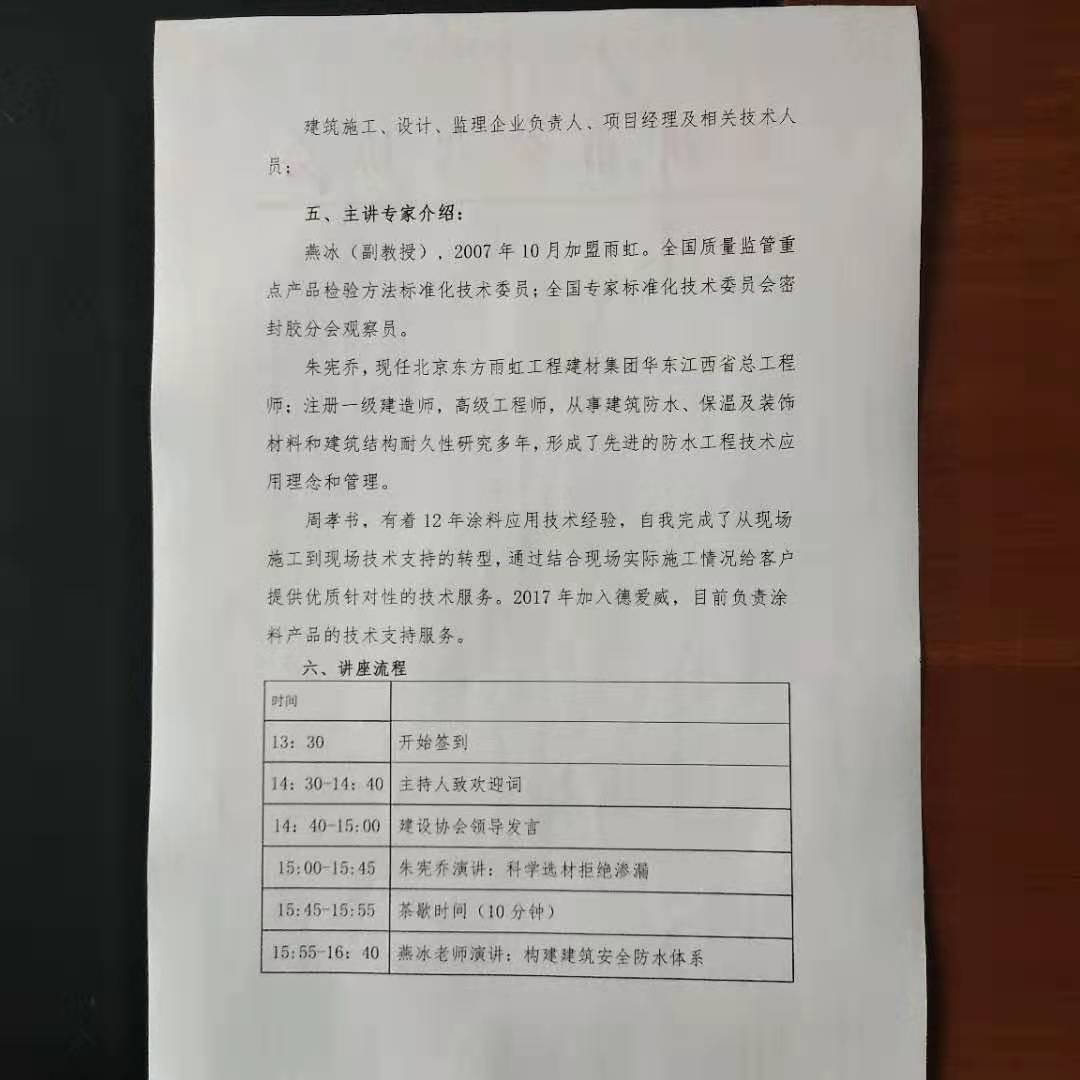 建筑施工、设计、监理企业负责人、项目经理及相关技术人
员;
五、主讲专家介绍:
燕冰（副教授）, 2007 年 10 月加盟雨虹。全国质量监管重
点产品检验方法标准化技术委员; 全国专家标准化技术委员会密
封胶分会观察员。
朱宪乔, 现任北京东方雨虹工程建材集团华东江西省总工程
师; 注册一级建造师, 高级工程师, 从事建筑防水、保温及装饰
材料和建筑结构耐久性研究多年, 形成了先进的防水工程技术应
用理念和管理。
周孝书, 有着 12 年涂料应用技术经验, 自我完成了从现场
施工到现场技术支持的转型, 通过结合现场实际施工情况给客户
提供优质针对性的技术服务。2017 年加入德爱威, 目前负责涂
料产品的技术支持服务。
六、讲座流程
时间
13: 30 开始签到
14: 30-14: 40 主持人致欢迎词
14: 40-15:00 建设协会领导发言
15:00-15:45 朱宪乔演讲: 科学选材拒绝渗漏
15:45-15:55 茶歇时间（10 分钟）
15:55-16: 40 燕冰老师演讲: 构建建筑安全防水体系